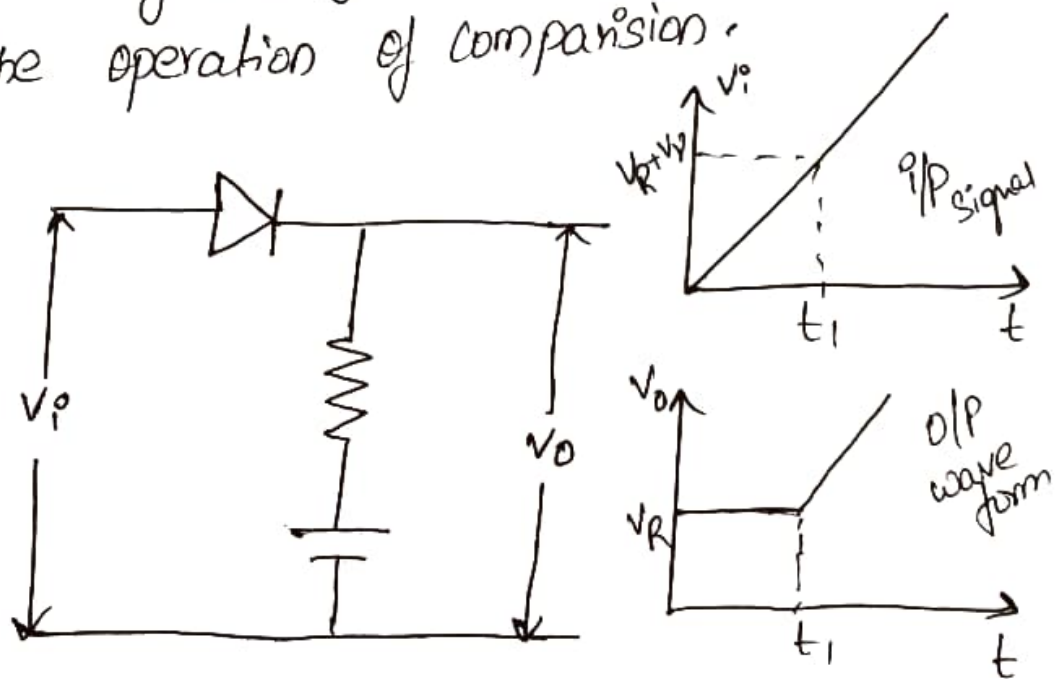 he operation of comparision.
Vi
VR+Vγ
i/P signal
t1
t
Vi
Vo
Vo
VR
O/P
wave
form
t1
t